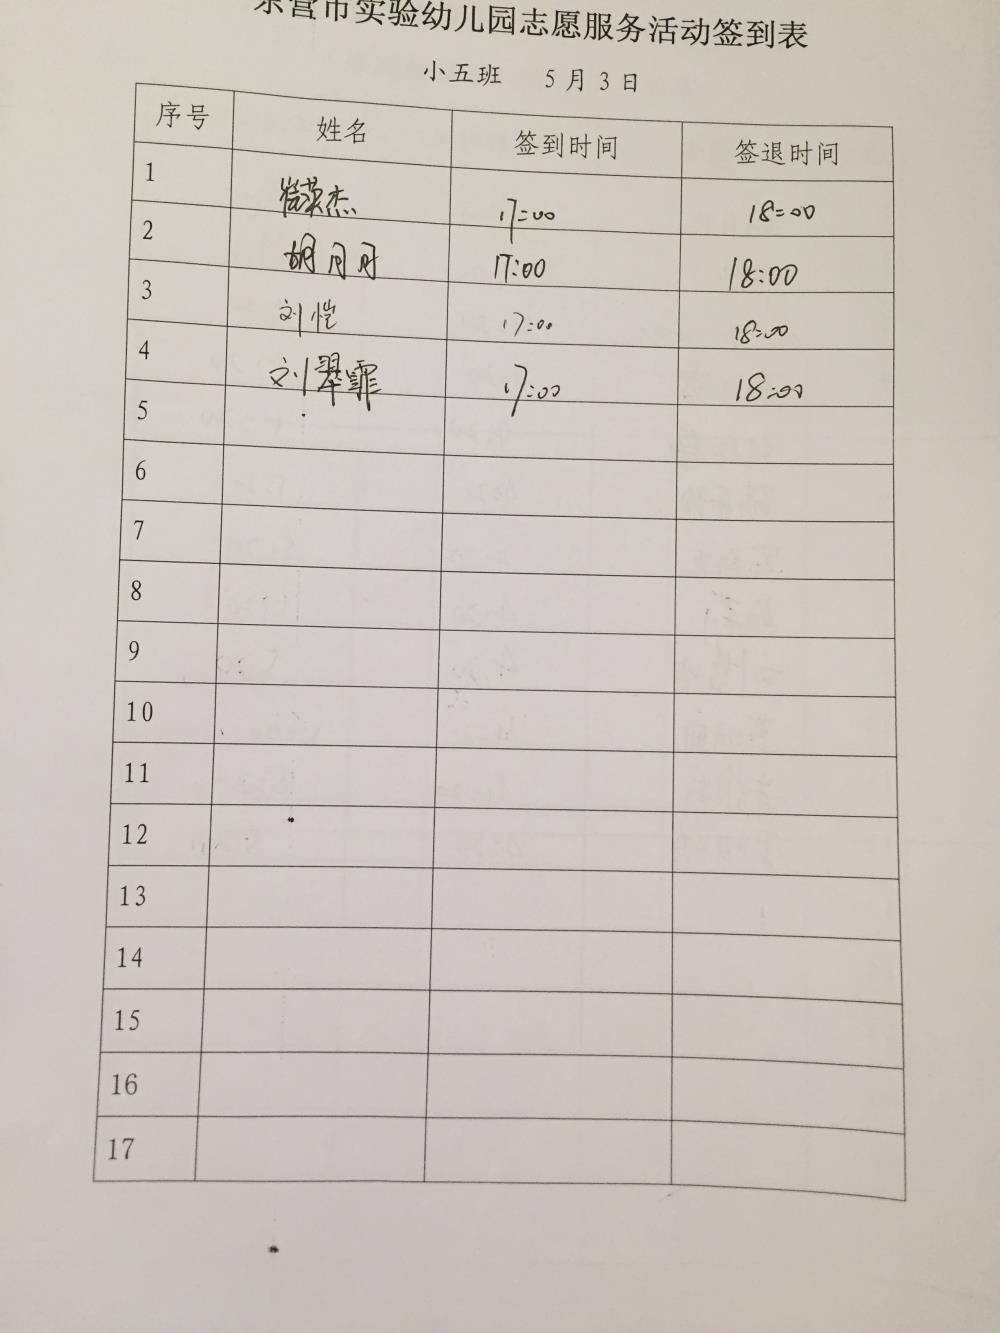 东营市实验幼儿园志愿服务活动签到表
小五班 5月3日
序号 姓名 签到时间 签退时间
1 崔英杰 17:00 18:00
2 胡月月 17:00 18:00
3 刘恺 17:00 18:00
4 刘翠霏 17:00 18:00
5
6
7
8
9
10
11
12
13
14
15
16
17